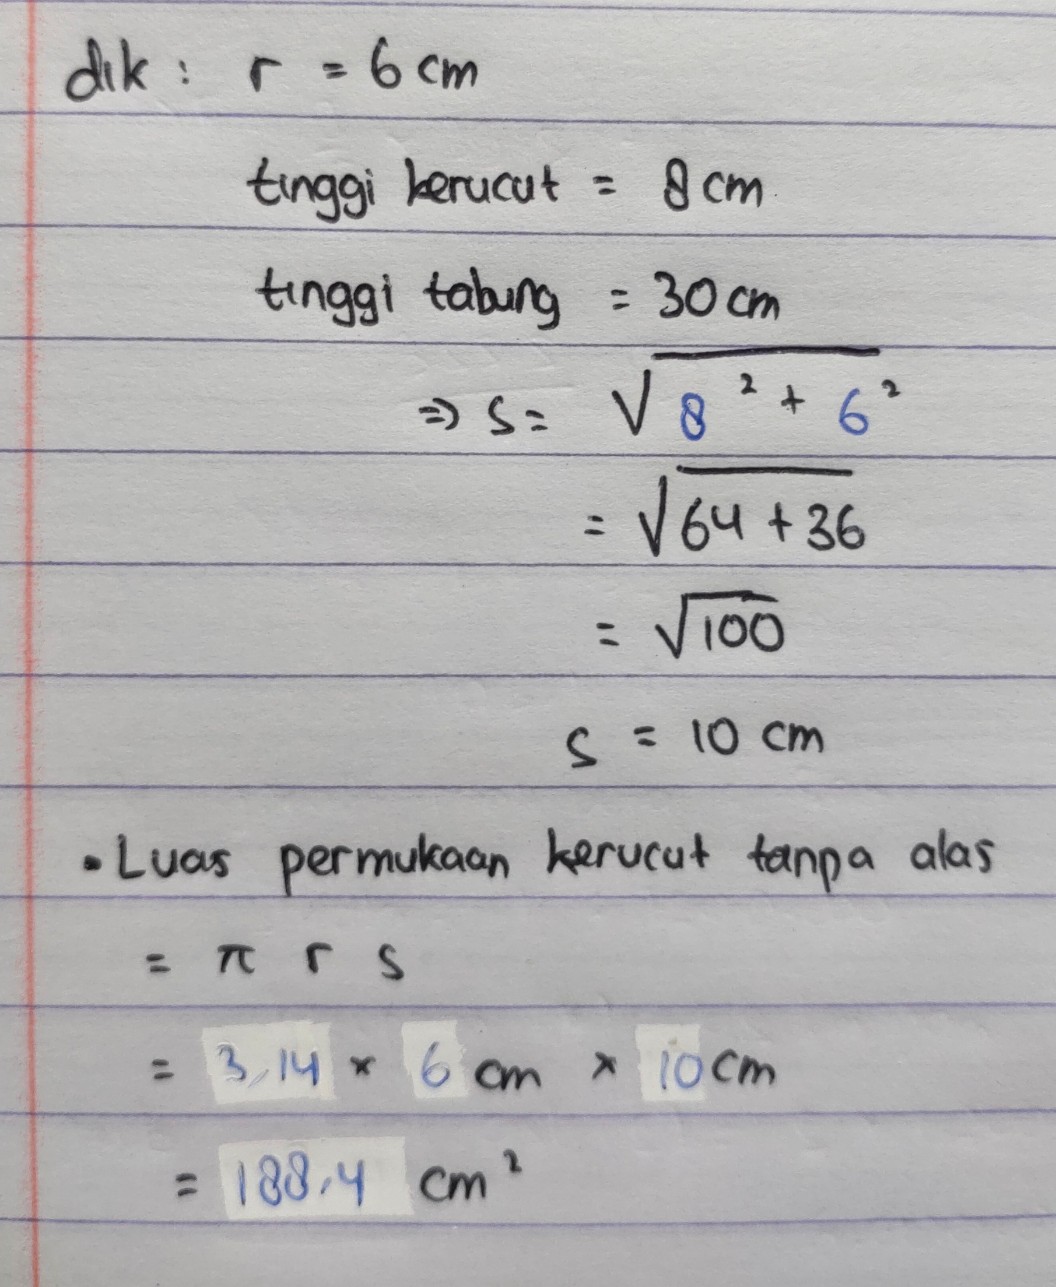 dik : r = 6 cm
tinggi kerucut = 8 cm
tinggi tabung = 30 cm
⇒ s = √8² + 6²
= √64 + 36
= √100
s = 10 cm
• Luas permukaan kerucut tanpa alas
= π r s
= 3,14 × 6 cm × 10 cm
= 188,4 cm²